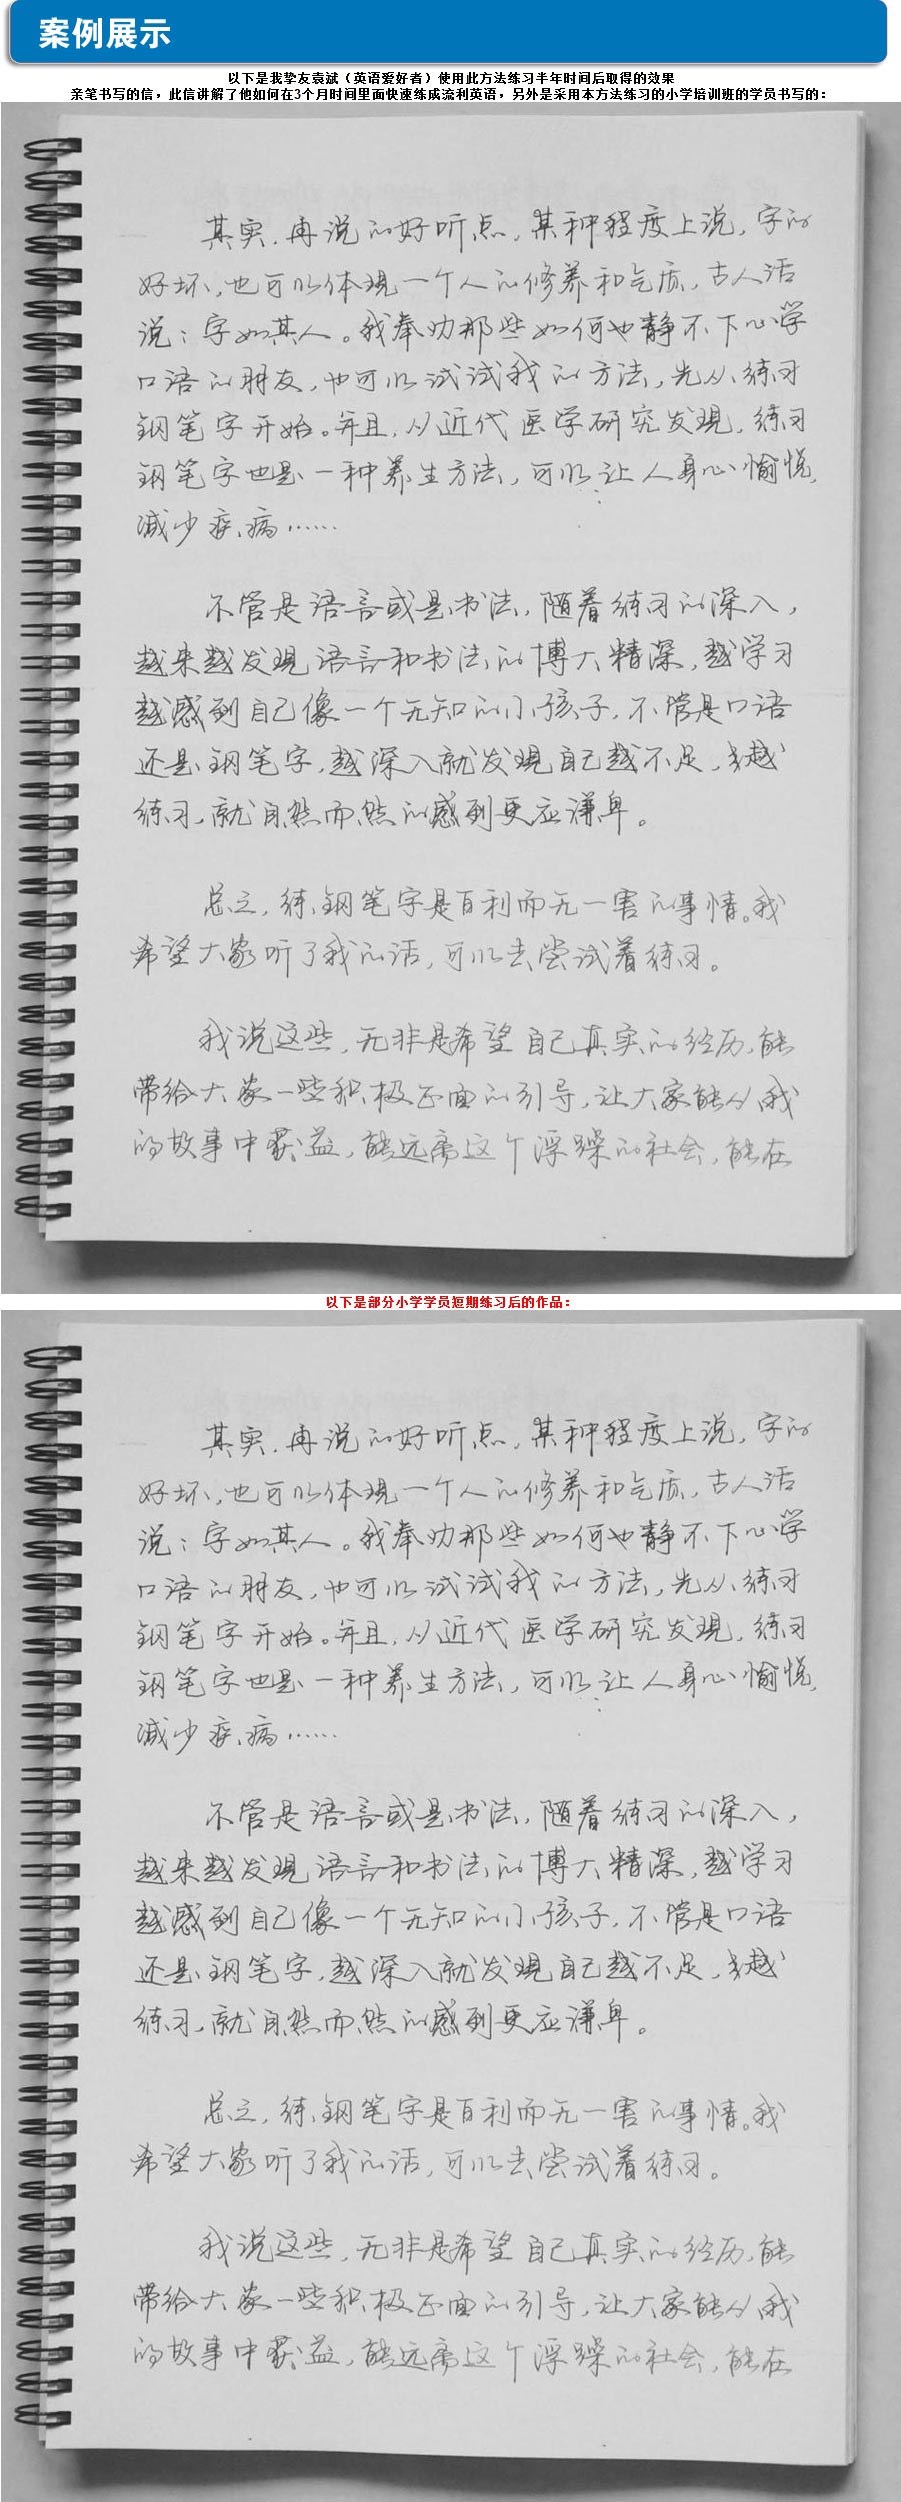 案例展示
以下是我挚友袁斌（英语爱好者）使用此方法练习半年时间后取得的效果
亲笔书写的信，此信讲解了他如何在3个月时间里面快速练成流利英语，另外是采用本方法练习的小学培训班的学员书写的：
其实，再说的好听点，某种程度上说，字的
好坏，也可以体现一个人的修养和气质，古人话
说：字如其人。我奉劝那些如何也静不下心学
口语的朋友，也可以试试我的方法，先从练习
钢笔字开始。并且，从近代医学研究发现，练习
钢笔字也是一种养生方法，可以让人身心愉悦，
减少疾病……
不管是语言或是书法，随着练习的深入，
越来越发现语言和书法的博大精深，越学习
越感到自己像一个无知的小孩子，不管是口语
还是钢笔字，越深入就发现自己越不足，越
练习，就自然而然的感到更应谦卑。
总之，练钢笔字是百利而无一害的事情。我
希望大家听了我的话，可以去尝试着练习。
我说这些，无非是希望自己真实的经历，能
带给大家一些积极正面的引导，让大家能从我
的故事中获益，能远离这个浮躁的社会，能在
以下是部分小学学员短期练习后的作品：
其实，再说的好听点，某种程度上说，字的
好坏，也可以体现一个人的修养和气质，古人话
说：字如其人。我奉劝那些如何也静不下心学
口语的朋友，也可以试试我的方法，先从练习
钢笔字开始。并且，从近代医学研究发现，练习
钢笔字也是一种养生方法，可以让人身心愉悦，
减少疾病……
不管是语言或是书法，随着练习的深入，
越来越发现语言和书法的博大精深，越学习
越感到自己像一个无知的小孩子，不管是口语
还是钢笔字，越深入就发现自己越不足，越
练习，就自然而然的感到更应谦卑。
总之，练钢笔字是百利而无一害的事情。我
希望大家听了我的话，可以去尝试着练习。
我说这些，无非是希望自己真实的经历，能
带给大家一些积极正面的引导，让大家能从我
的故事中获益，能远离这个浮躁的社会，能在